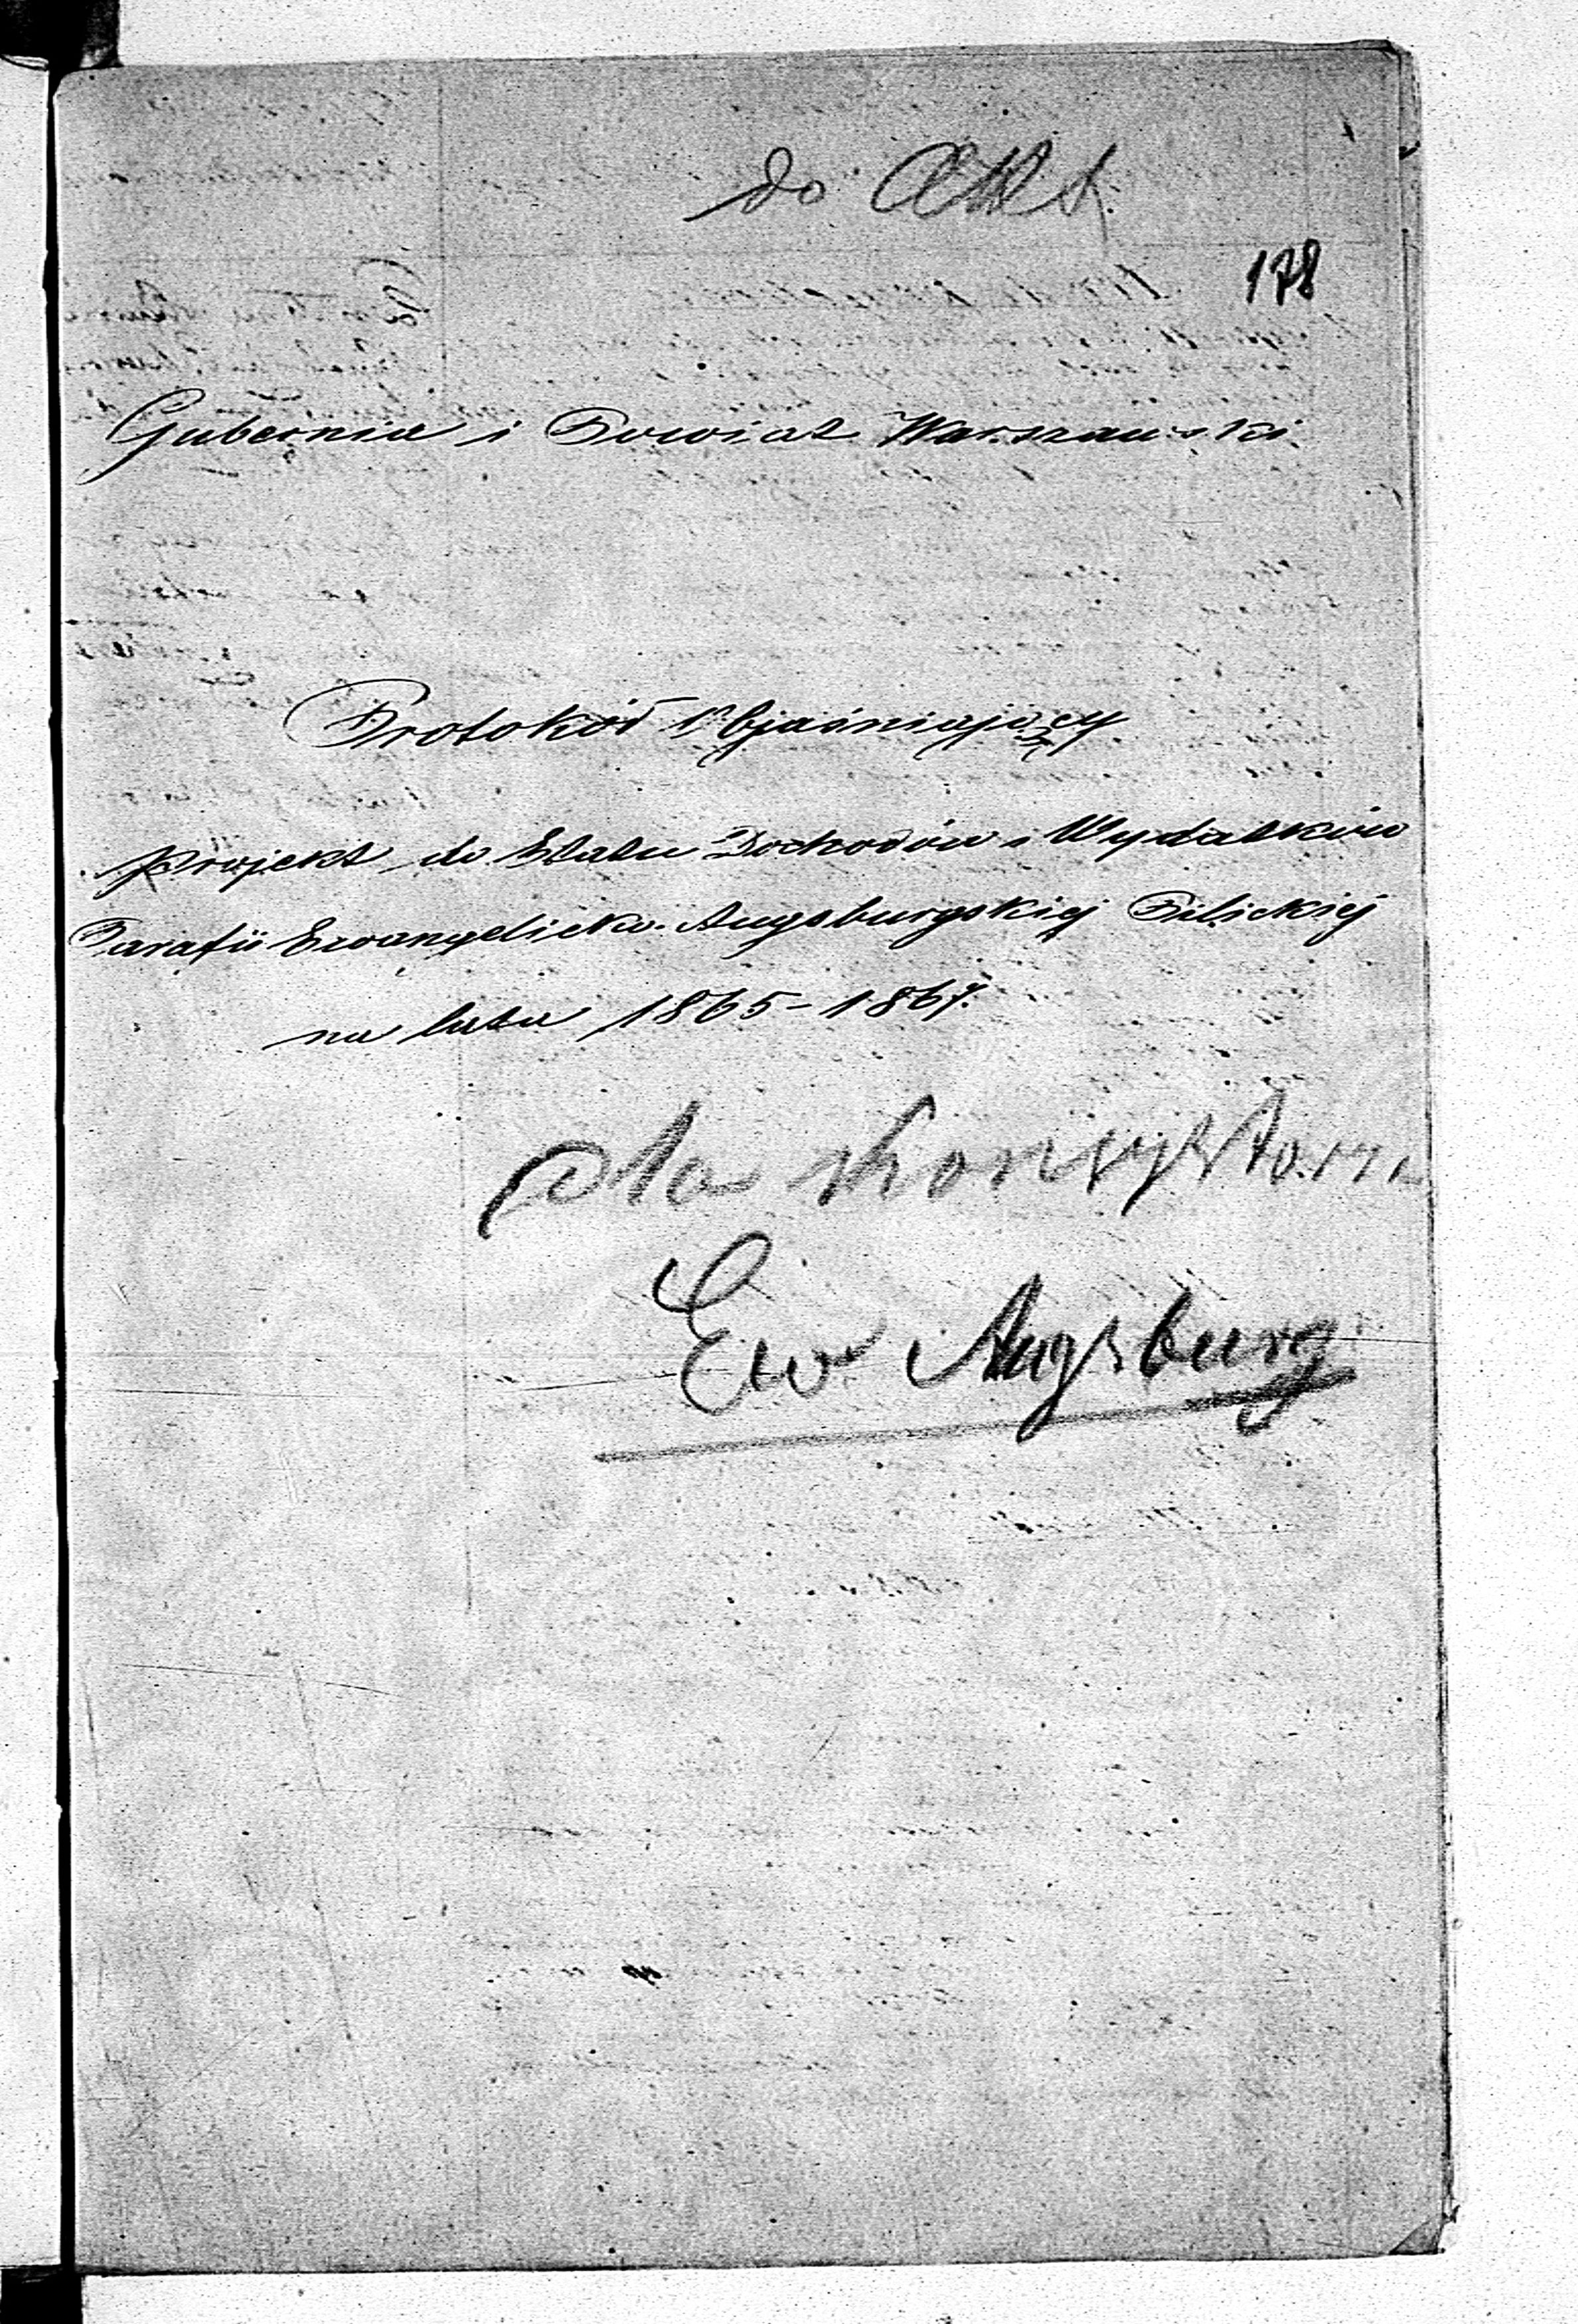 do Akt
178
Gubernia i Powiat Warszawski
Protokół Objaśniający
projekt do Etatu Dochodów i Wydatków
Parafii Ewangelicko-Augsburgskiej Pilickiej
na lata 1865-1867.
dla Konsystorza
Ew Augsburg